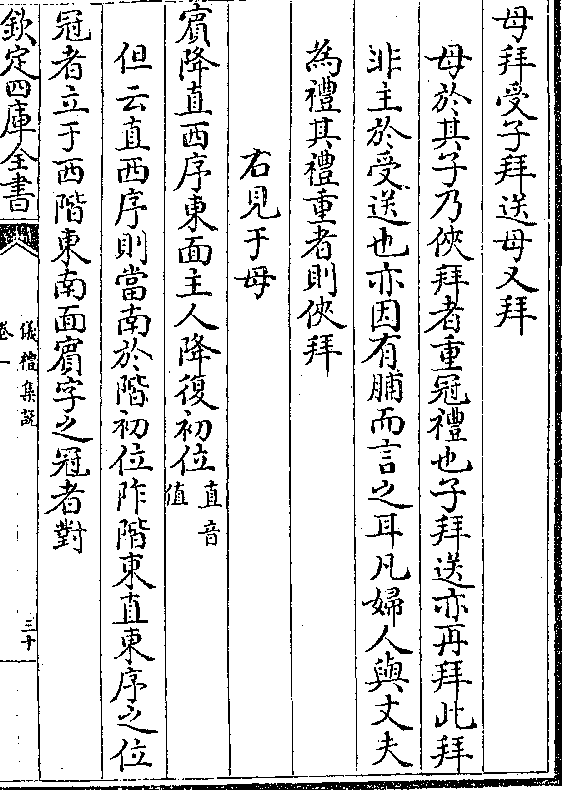 母拜受子拜送母又拜
母於其子乃俠拜者重冠禮也子拜送亦再拜此拜
非主於受送也亦因有脯而言之耳凡婦人與丈夫
為禮其禮重者則俠拜
右見于母
賓降直西序東面主人降復初位直音值
但云直西序則當南於階初位阼階東直東序之位
冠者立于西階東南面賓字之冠者對
欽定四庫全書
儀禮集說
卷一
三十